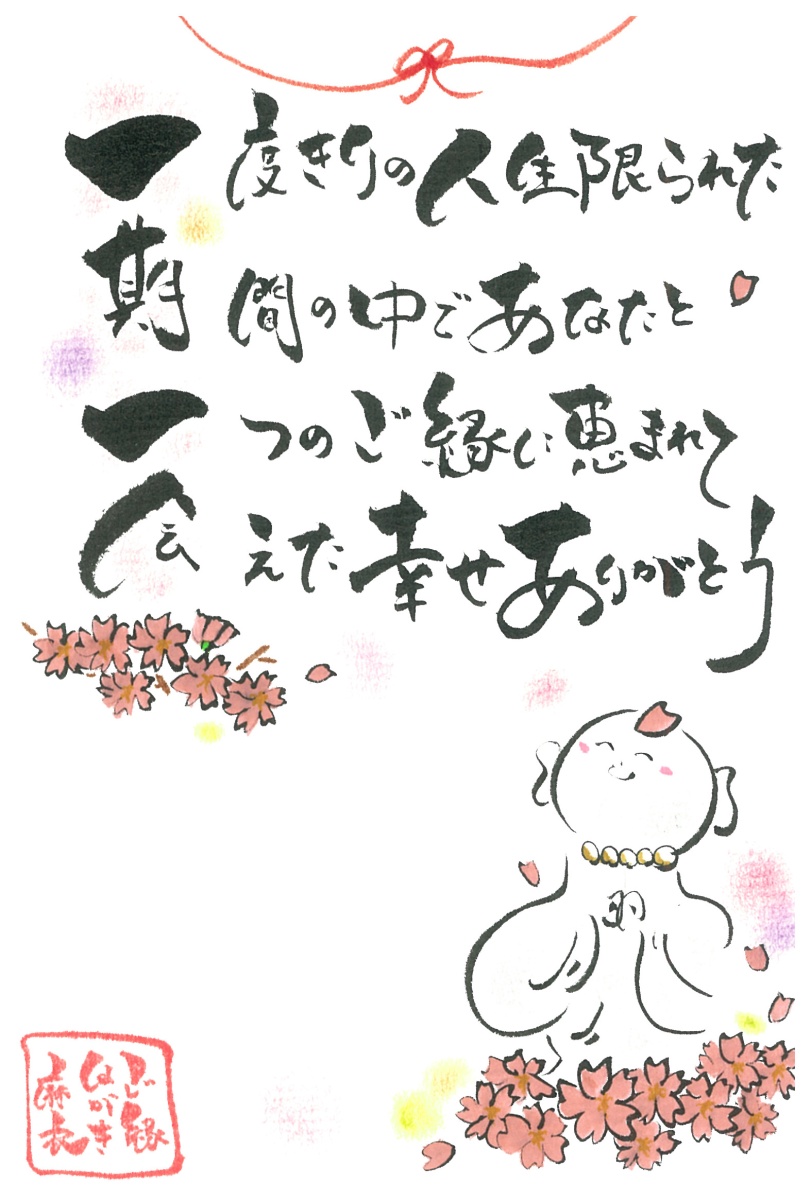 一度きりの人生限られた
期間の中であなたと
一つのご縁に恵まれて
会えた幸せありがとう
ご縁
はがき
麻衣